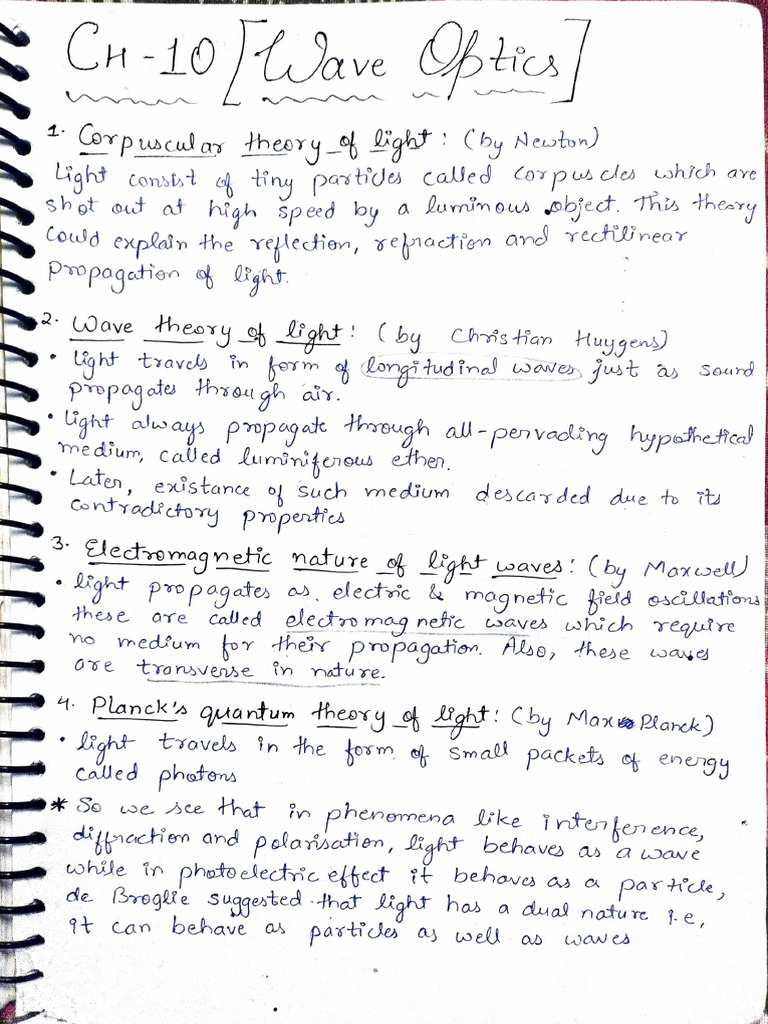 CH-10 [Wave Optics]
1. Corpuscular theory of light: (by Newton)
Light consist of tiny particles called corpuscles which are
shot out at high speed by a luminous object. This theory
could explain the reflection, refraction and rectilinear
propagation of light.
2. Wave theory of light: (by Christian Huygens)
• light travels in form of longitudinal waves just as sound
propagates through air.
• light always propagate through all-pervading hypothetical
medium, called luminiferous ether.
• Later, existance of such medium descarded due to its
contradictory properties
3. Electromagnetic nature of light waves: (by Maxwell)
• light propagates as electric & magnetic field oscillations
these are called electromagnetic waves which require
no medium for their propagation. Also, these waves
are transverse in nature.
4. Planck's quantum theory of light: (by Max Planck)
• light travels in the form of small packets of energy
called photons
* So we see that in phenomena like interference,
diffraction and polarisation, light behaves as a wave
while in photoelectric effect it behaves as a particle,
de Broglie suggested that light has a dual nature i.e,
it can behave as particles as well as waves